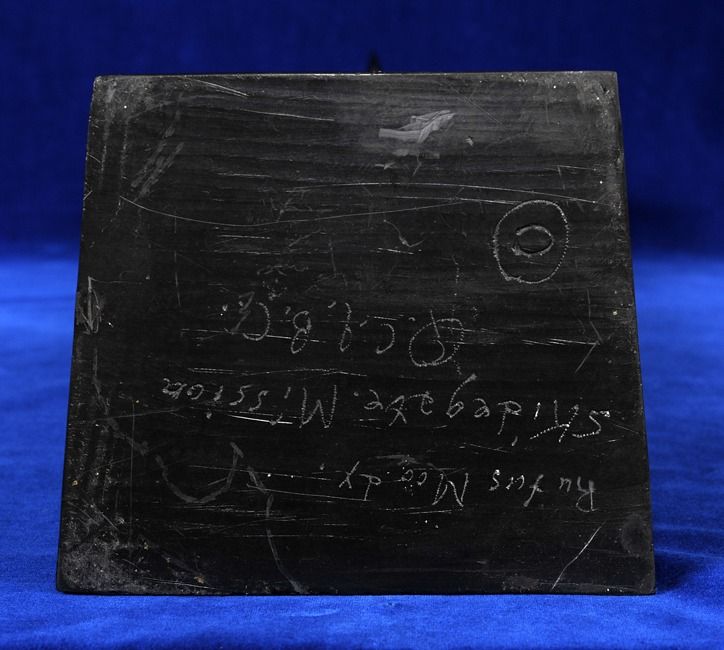 Rufus Moody
Skidegate Mission
Q.C.I. B.C.